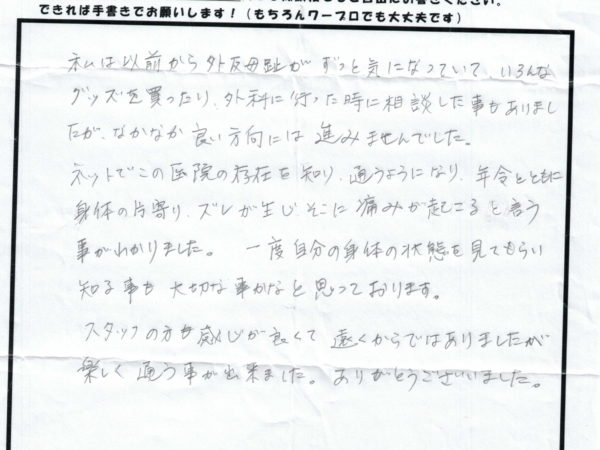 できれば手書きでお願いします！（もちろんワープロでも大丈夫です）
私は以前から外反母趾がずっと気になっていて、いろんな
グッズを買ったり、外科に行った時に相談した事もありまし
たが、なかなか良い方向には進みませんでした。
ネットでこの医院の存在を知り、通うようになり、年令とともに
身体の片寄り、ズレが生じそこに痛みが起こると言う
事がわかりました。一度自分の身体の状態を見てもらい
知る事も大切な事かなと思っております。
スタッフの方も感じが良くて遠くからではありましたが
楽しく通う事が出来ました。ありがとうございました。